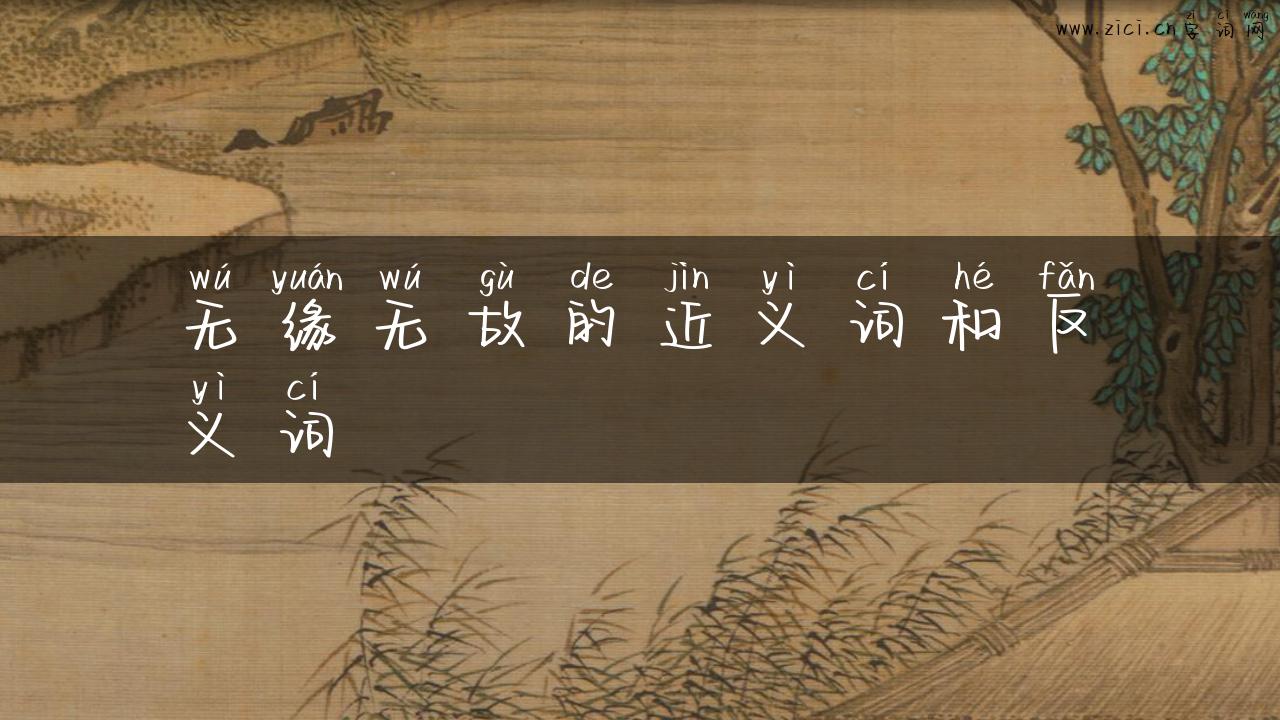 zì cí wǎng
www.zici.cn 字词网
wú yuán wú gù de jìn yì cí hé fǎn
无缘无故的近义词和反
yì cí
义词